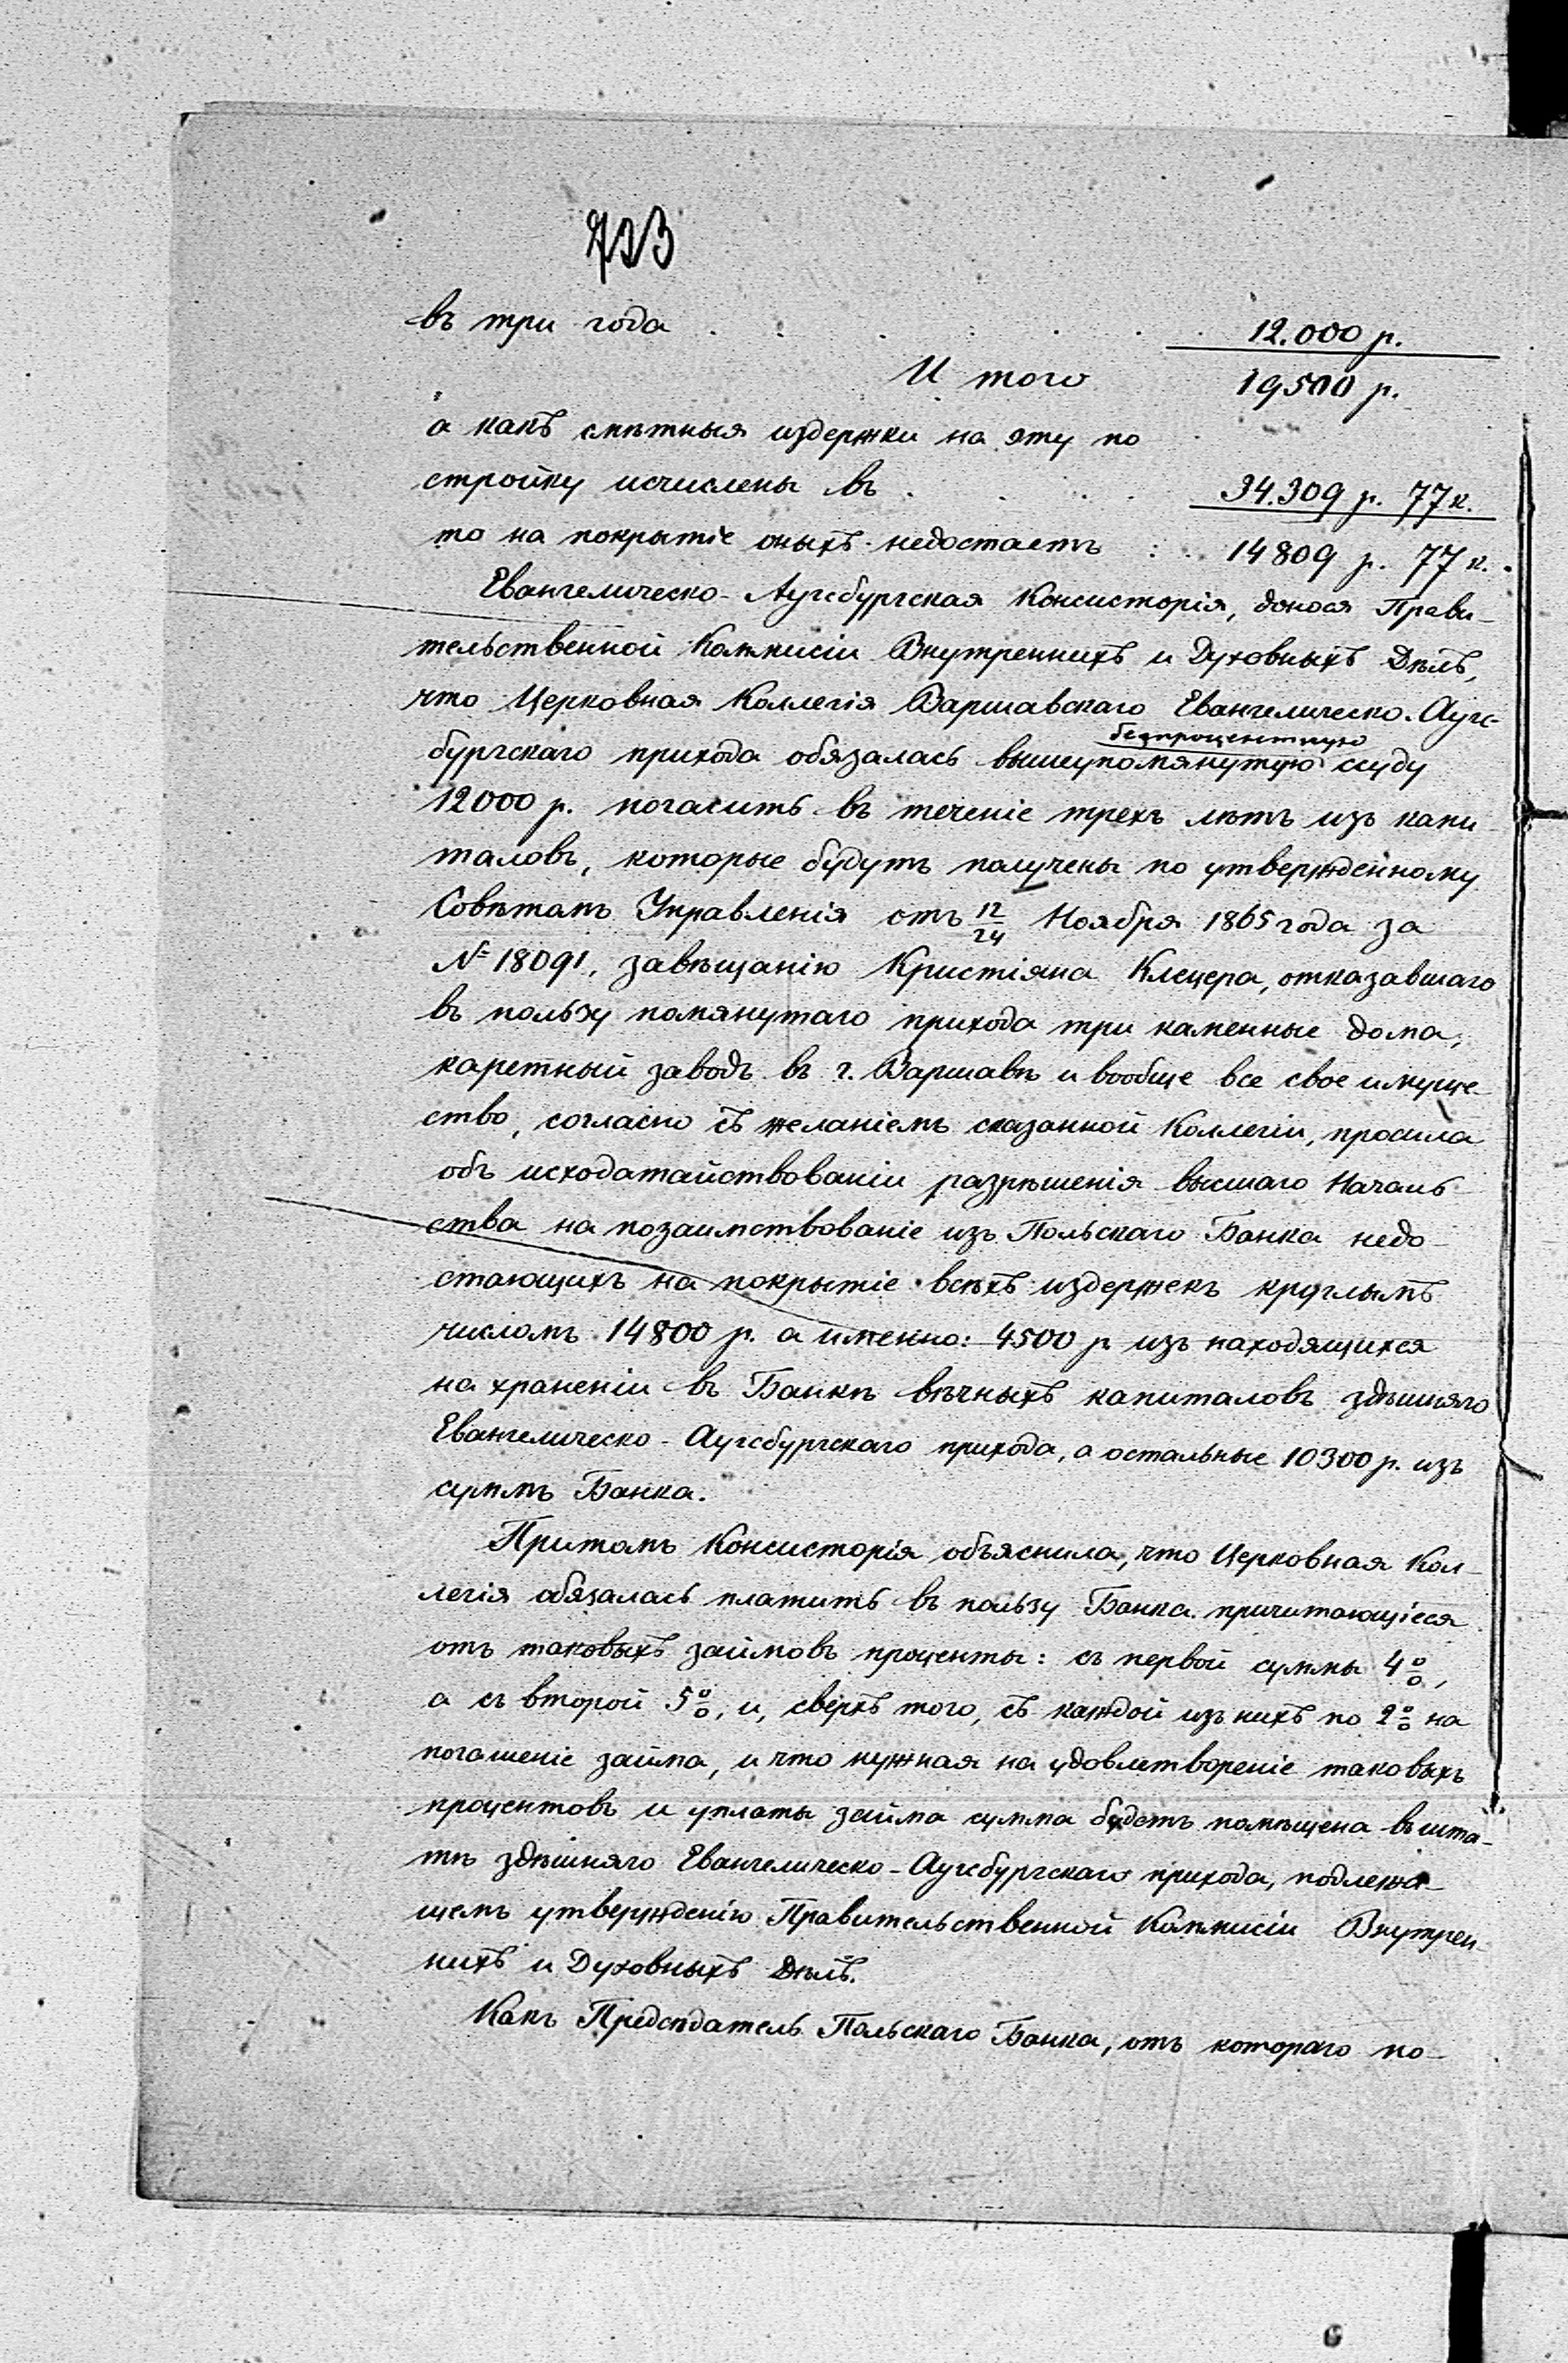 723
въ три года . . . . . 12.000 р.
И того 19500 р.
а какъ смѣтныя издержки на эту по
стройку исчислены въ . . . . 34.309 р. 77 к.
то на покрытіе оныхъ недостаетъ : . 14809 р. 77 к.
Евангелическо-Аугсбургская Консисторія, донося Прави-
тельственной Коммисіи Внутреннихъ и Духовныхъ Дѣлъ,
что Церковная Коллегія Варшавскаго Евангелическо-Аугс-
безпроцентную
бургскаго прихода обязалась вышеупомянутую ссуду
12000 р. погасить въ теченіе трехъ лѣтъ изъ капи
таловъ, которые будутъ получены по утвержденному
Совѣтомъ Управленія отъ 12/24 Ноября 1865 года за
№ 18091, завѣщанію Кристіяна Клецера, отказавшаго
въ пользу помянутаго прихода три каменные дома,
каретный заводъ въ г. Варшавѣ и вообще все свое имуще-
ство, согласно съ желаніемъ сказанной Коллегіи, просила
объ исходатайствованіи разрѣшенія высшаго Началь-
ства на позаимствованіе изъ Польскаго Банка недо-
стающихъ на покрытіе всѣхъ издержекъ круглымъ
числомъ 14800 р. а именно: 4500 р. изъ находящихся
на храненіи въ Банкѣ вѣчныхъ капиталовъ здѣшняго
Евангелическо-Аугсбургскаго прихода, а остальные 10300 р. изъ
суммъ Банка.
Притомъ Консисторія объяснила, что Церковная Кол-
легія обязалась платить въ пользу Банка причитающіеся
отъ таковыхъ займовъ проценты: съ первой суммы 4%,
а съ второй 5%, и, сверхъ того, съ каждой изъ нихъ по 2% на
погашеніе займа, и что нужная на удовлетвореніе таковыхъ
процентовъ и уплаты займа сумма будетъ помѣщена въ шта-
тѣ здѣшняго Евангелическо-Аугсбургскаго прихода, подлежа-
щемъ утвержденію Правительственной Коммисіи Внутрен-
нихъ и Духовныхъ Дѣлъ.
Какъ Предсѣдатель Польскаго Банка, отъ котораго по-